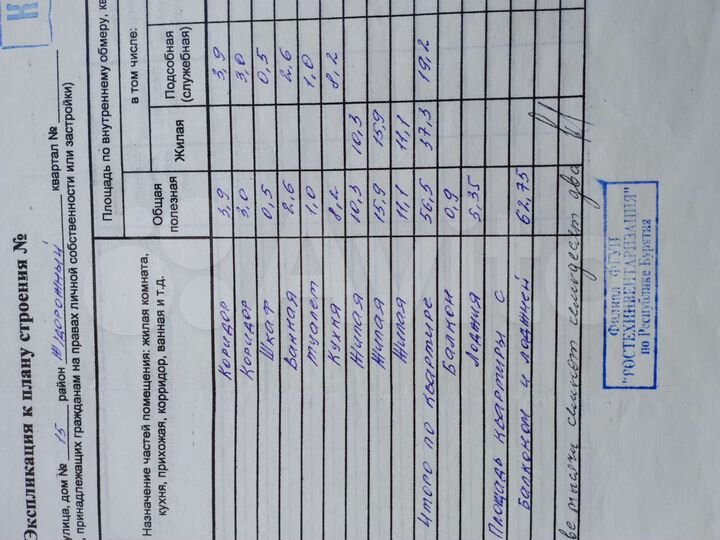 Экспликация к плану строения №
улица, дом № 15 район Ж/дорожный квартал №
, принадлежащих гражданам на правах личной собственности или застройки)
Назначение частей помещения: жилая комната, кухня, прихожая, корридор, ванная и т.д.
Площадь по внутреннему обмеру, кв
Общая полезная
в том числе:
Жилая
Подсобная (служебная)
Коридор 3,9 3,9
Коридор 3,0 3,0
Шкаф 0,5 0,5
Ванная 2,6 2,6
Туалет 1,0 1,0
Кухня 8,2 8,2
Жилая 10,3 10,3
Жилая 15,9 15,9
Жилая 11,1 11,1
Итого по квартире 56,5 37,3 19,2
Балкон 0,9
Лоджия 5,35
Площадь квартиры с
балконом и лоджией 62,75
ве тысячи семьсот семьдесят два
Филиал ФГУП
"РОСТЕХИНВЕНТАРИЗАЦИЯ"
по Республике Бурятия